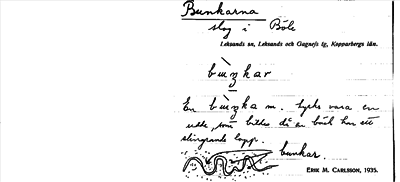 Bunkarna
slog i Böle
Leksands sn, Leksands och Gagnefs tg, Kopparbergs län.
bu̠ŋkar
En buŋka m. tycks vara en
udde, som bildas då en bäck har ett
slingrande lopp.
bunkar.
ERIK M. CARLSSON, 1935.